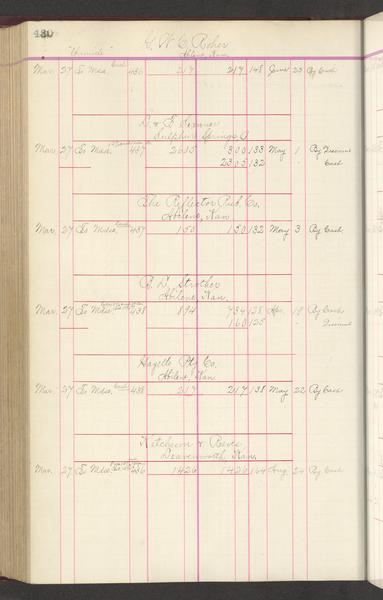 430
"Chronicle" G. W. C. Rohrer
Abilene, Kan.
Mar. 27 To Mdse. Cash 436 217 217 148 June 23 By Cash
Sulphur Springs, O.
Mar. 27 To Mdse. 437 2635 300 133 May 1 By Discount
2305 132 " Cash
The Reflector Pub. Co.
Abilene, Kan.
Mar. 27 To Mdse. Cash 437 150 150 132 May 3 By Cash
B. L. Strother
Abilene, Kan.
Mar. 27 To Mdse. 438 894 734 128 Apr. 19 By Cash
160 125 " Discount
Gazette Ptg Co.
Abilene, Kan
Mar. 27 To Mdse. Cash 438 217 217 138 May 22 By Cash
Ketcheson & Reeves
Leavenworth, Kan.
Mar. 27 To Mdse. 236 1426 1426 164 Aug. 24 By Cash